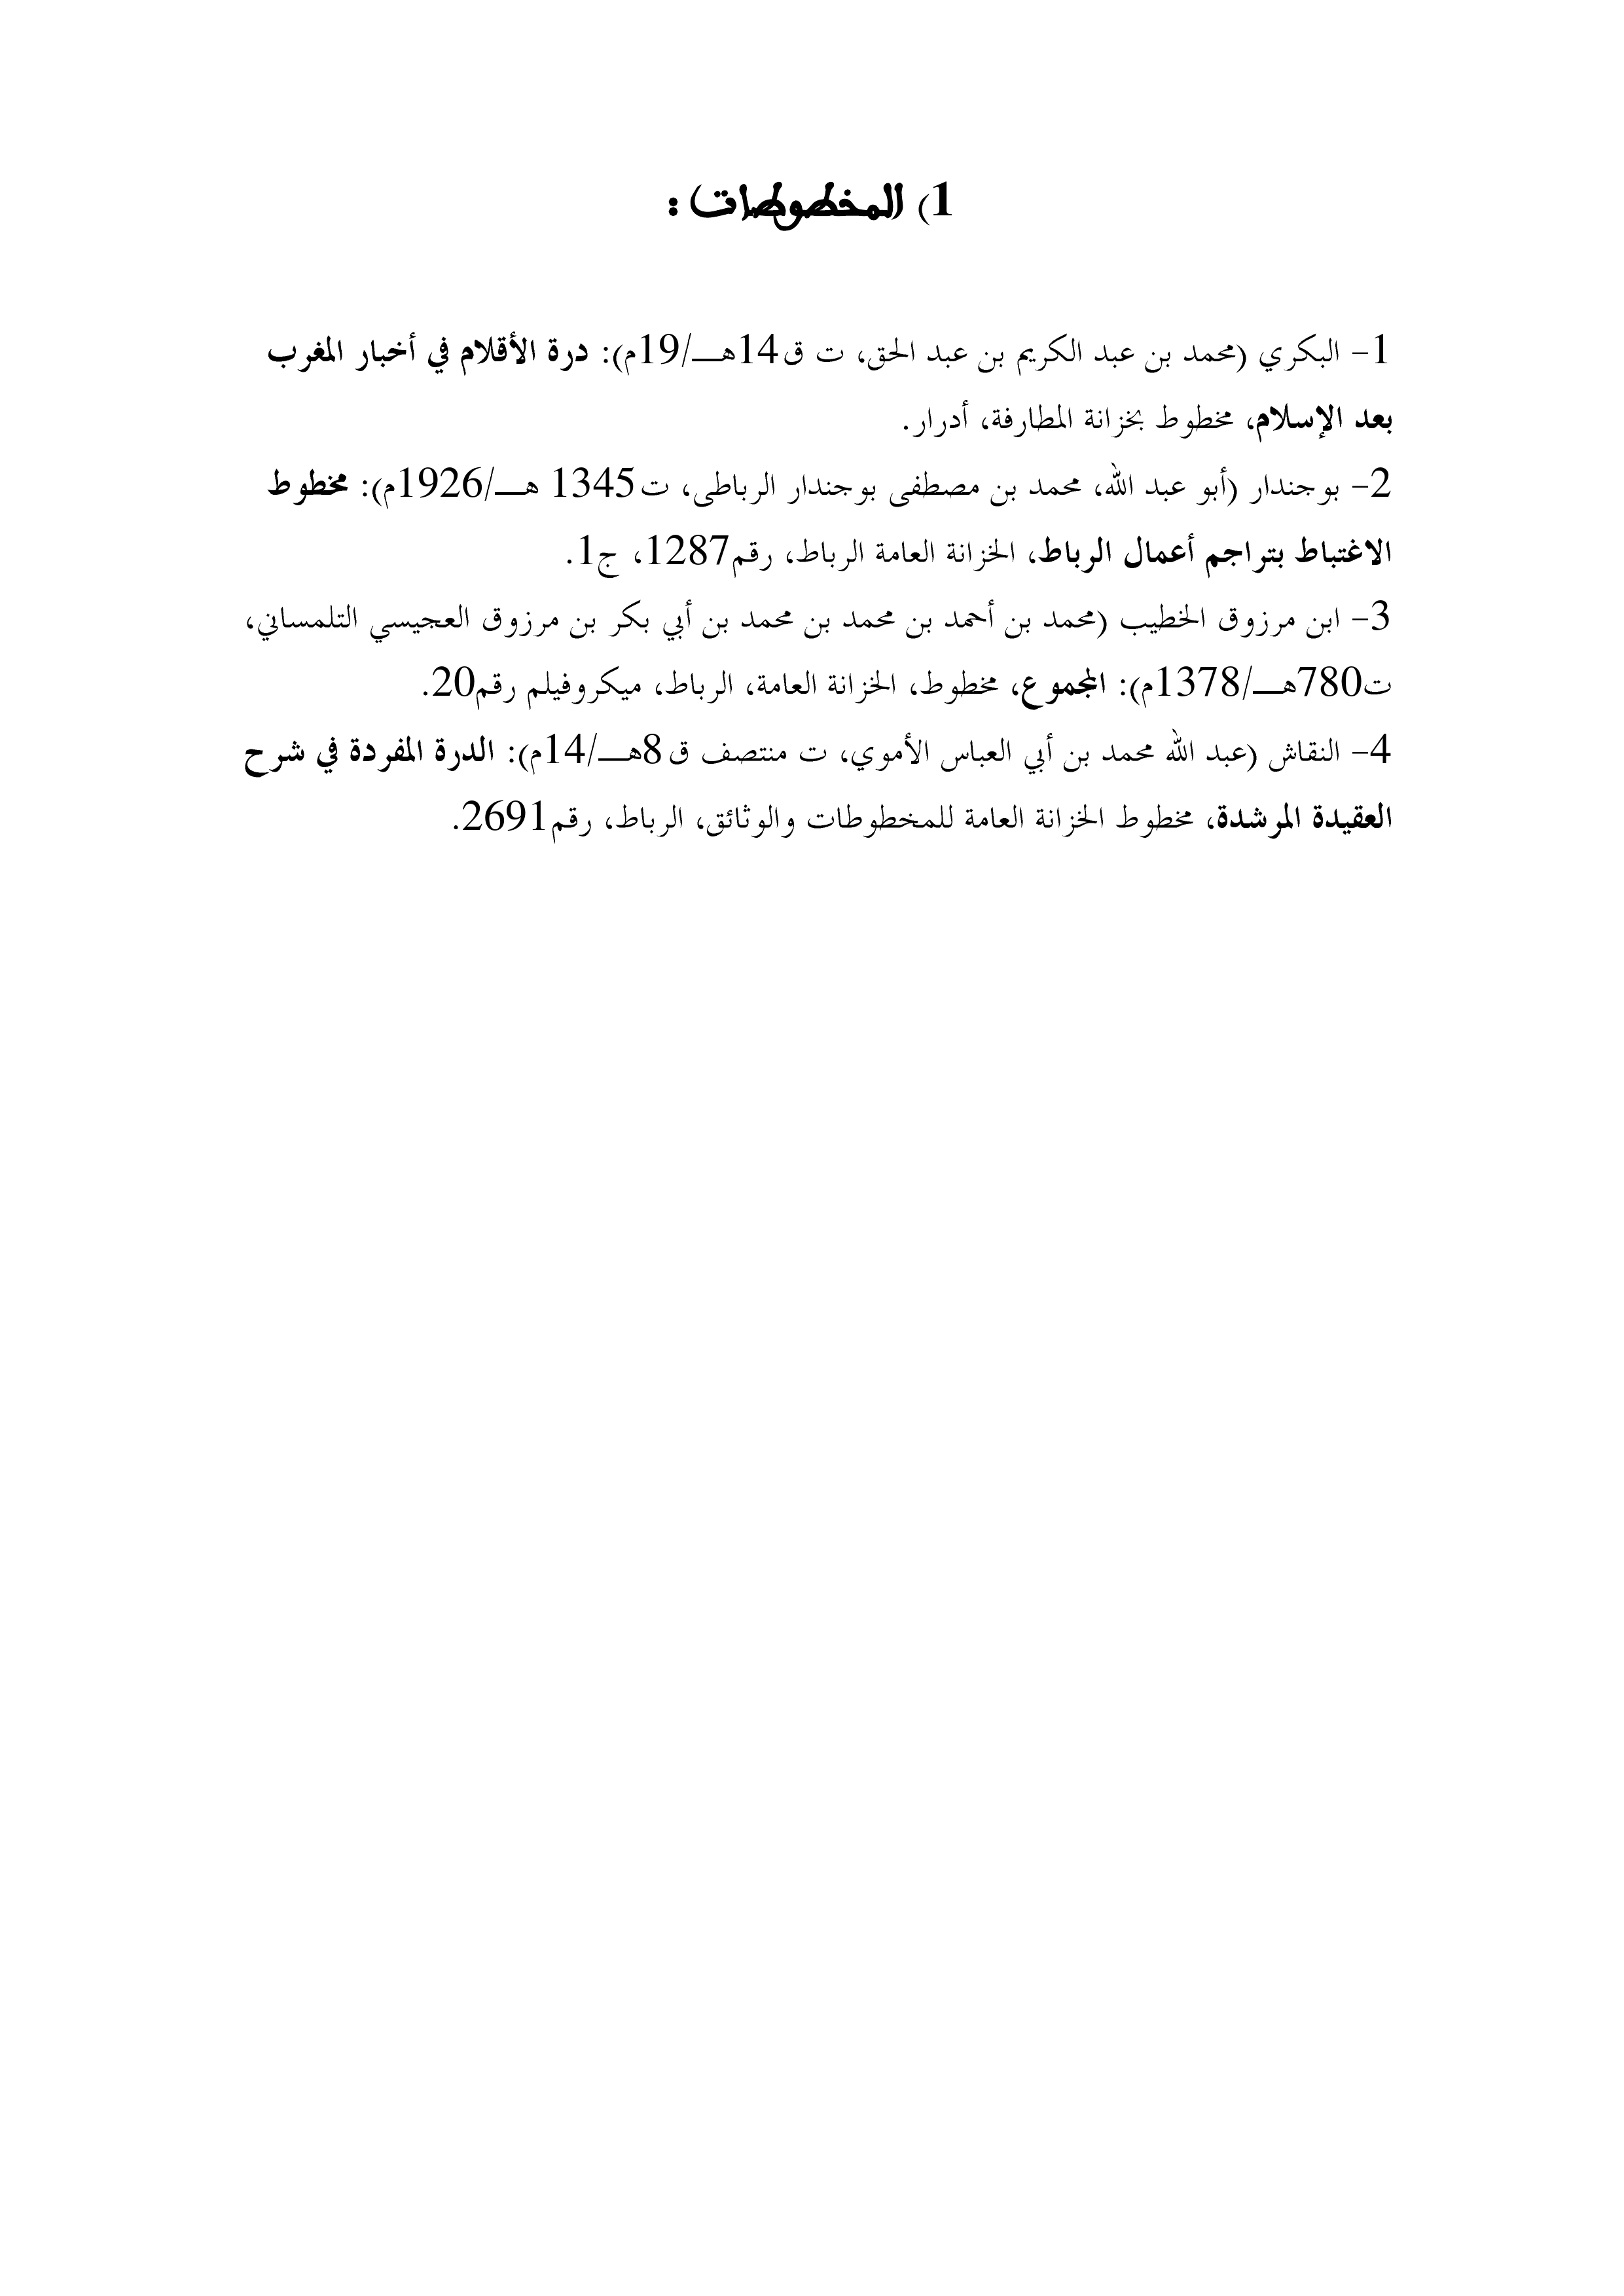 1) المخطوطات :
1- البكري (محمد بن عبد الكريم بن عبد الحق، ت ق14هـ/19م): درة الأقلام في أخبار المغرب
بعد الإسلام، مخطوط بخزانة المطارفة، أدرار.
2- بوجندار (أبو عبد الله، محمد بن مصطفى بوجندار الرباطى، ت1345 هـ/1926م): مخطوط
الاغتباط بتراجم أعمال الرباط، الخزانة العامة الرباط، رقم1287، ج1.
3- ابن مرزوق الخطيب (محمد بن أحمد بن محمد بن محمد بن أبي بكر بن مرزوق العجيسي التلمساني،
ت780هـ/1378م): المجموع، مخطوط، الخزانة العامة، الرباط، ميكروفيلم رقم20.
4- النقاش (عبد الله محمد بن أبي العباس الأموي، ت منتصف ق8هـ/14م): الدرة المفردة في شرح
العقيدة المرشدة، مخطوط الخزانة العامة للمخطوطات والوثائق، الرباط، رقم2691.